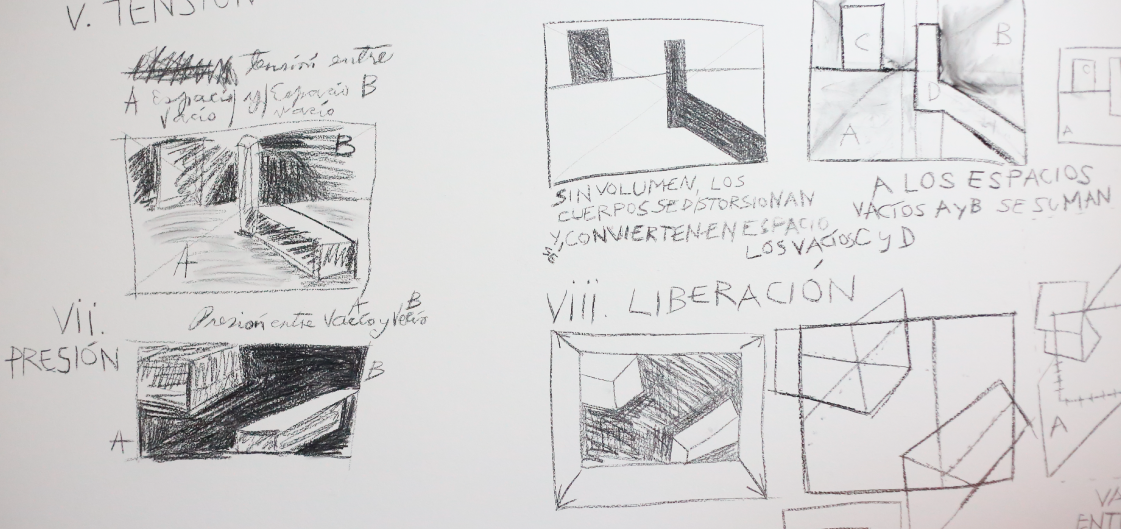 V. TENSIÓN
Tensión entre
A Espacio y Espacio B
vacío / vacío
B
A
Vii.
PRESIÓN
Presión entre Vacío A y Vacío B
B
A
SIN VOLUMEN, LOS
CUERPOS SE DISTORSIONAN
Y, CONVIERTEN EN ESPACIO
C
B
D
A
A LOS ESPACIOS
VACÍOS A y B SE SUMAN
LOS VACÍOS C y D
C
A
Viii. LIBERACIÓN
A
VA
ENT